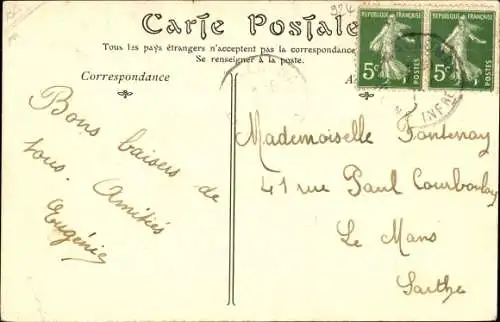 924
Carte Postale
Tous les pays étrangers n'acceptent pas la correspondance
Se renseigner à la poste.
Correspondance
RÉPUBLIQUE FRANÇAISE
5c
POSTES
RÉPUBLIQUE FRANÇAISE
5c
POSTES
Bons baisers de
tous. Amitiés
Eugénie
Mademoiselle Fontenay
41 rue Paul Courboulay
Le Mans
Sarthe